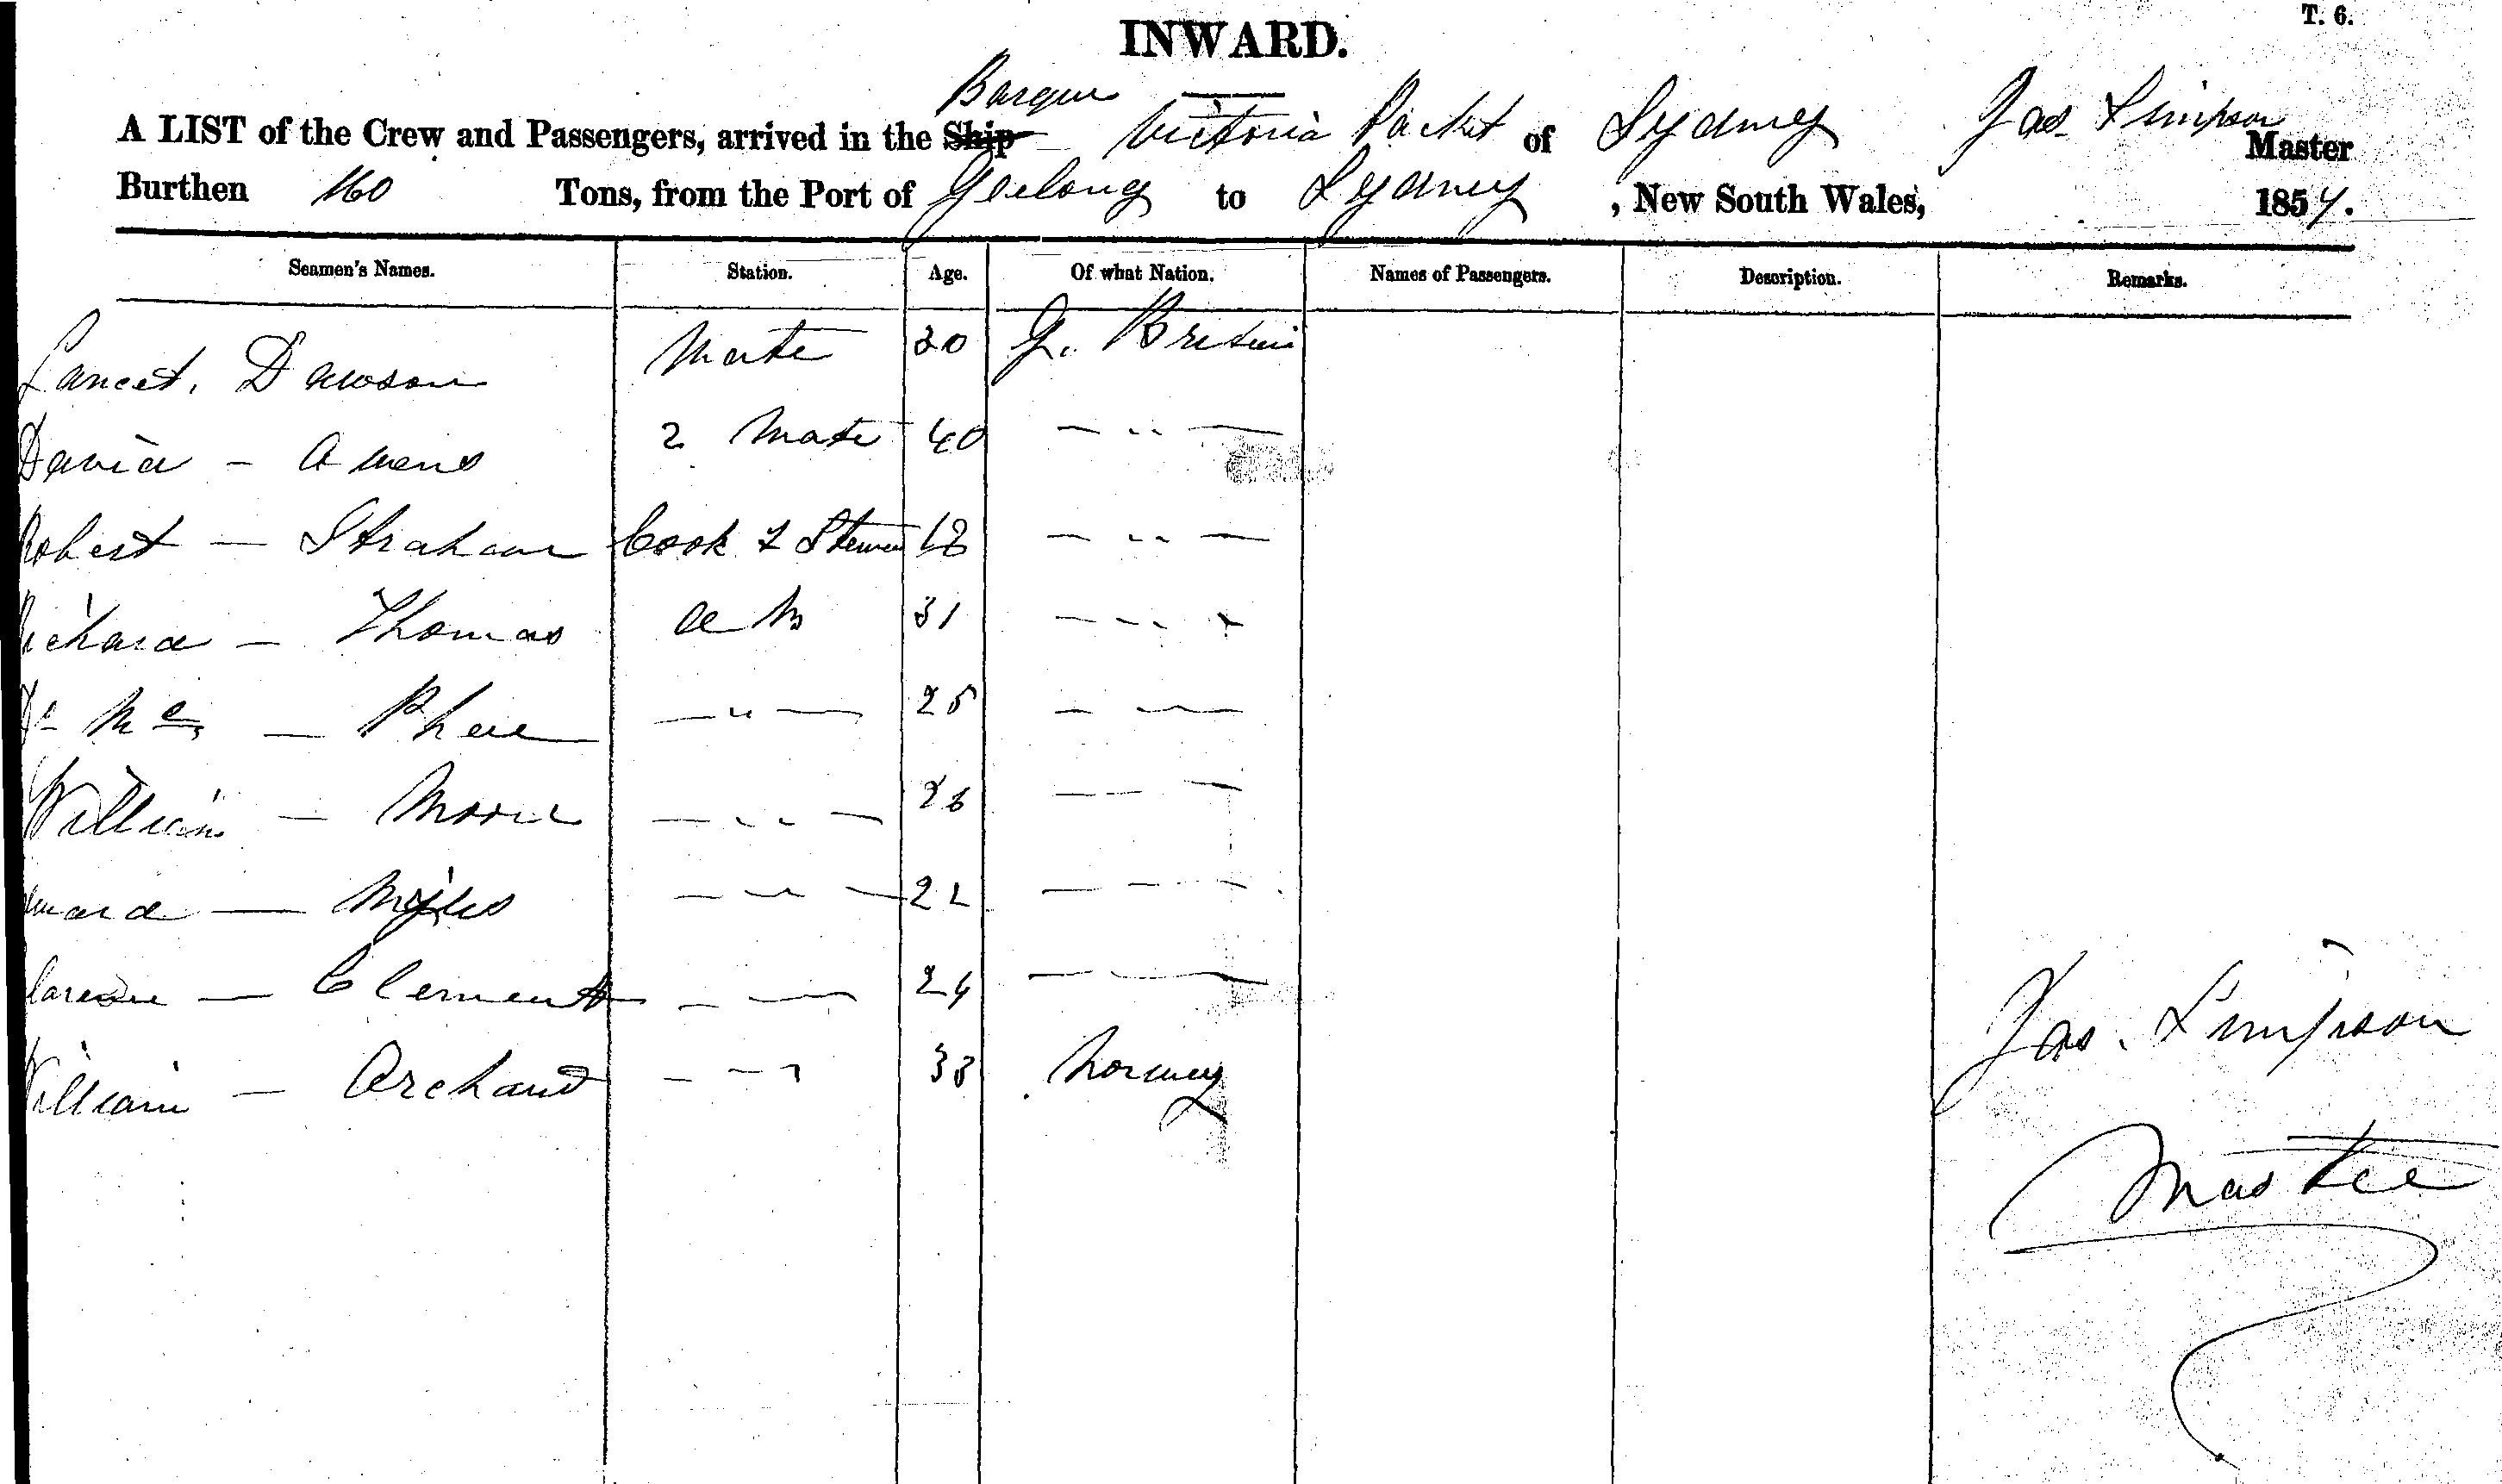 T. 6.
INWARD.
Barque
A LIST of the Crew and Passengers, arrived in the Ship Victoria Packet of Sydney Jas. Simpson Master
Burthen 160 Tons, from the Port of Geelong to Sydney, New South Wales, 1854.
Seamen's Names. Station. Age. Of what Nation. Names of Passengers. Description. Remarks.
Lancet. Dawson Mate 30 G. Britain
David - Owens 2 Mate 40 — " —
Robert — Strahan Cook & Stewd 18 — " —
Richard — Thomas A B 31 — " —
Mc — Phee — " — 25 — " —
William — Moore — " — 26 — " —
Edward — Myles — " — 22 — " —
Clarence — Clements — " — 24 — " —
William — Orchard — " — 33 Norway
Jas. Simpson
Master